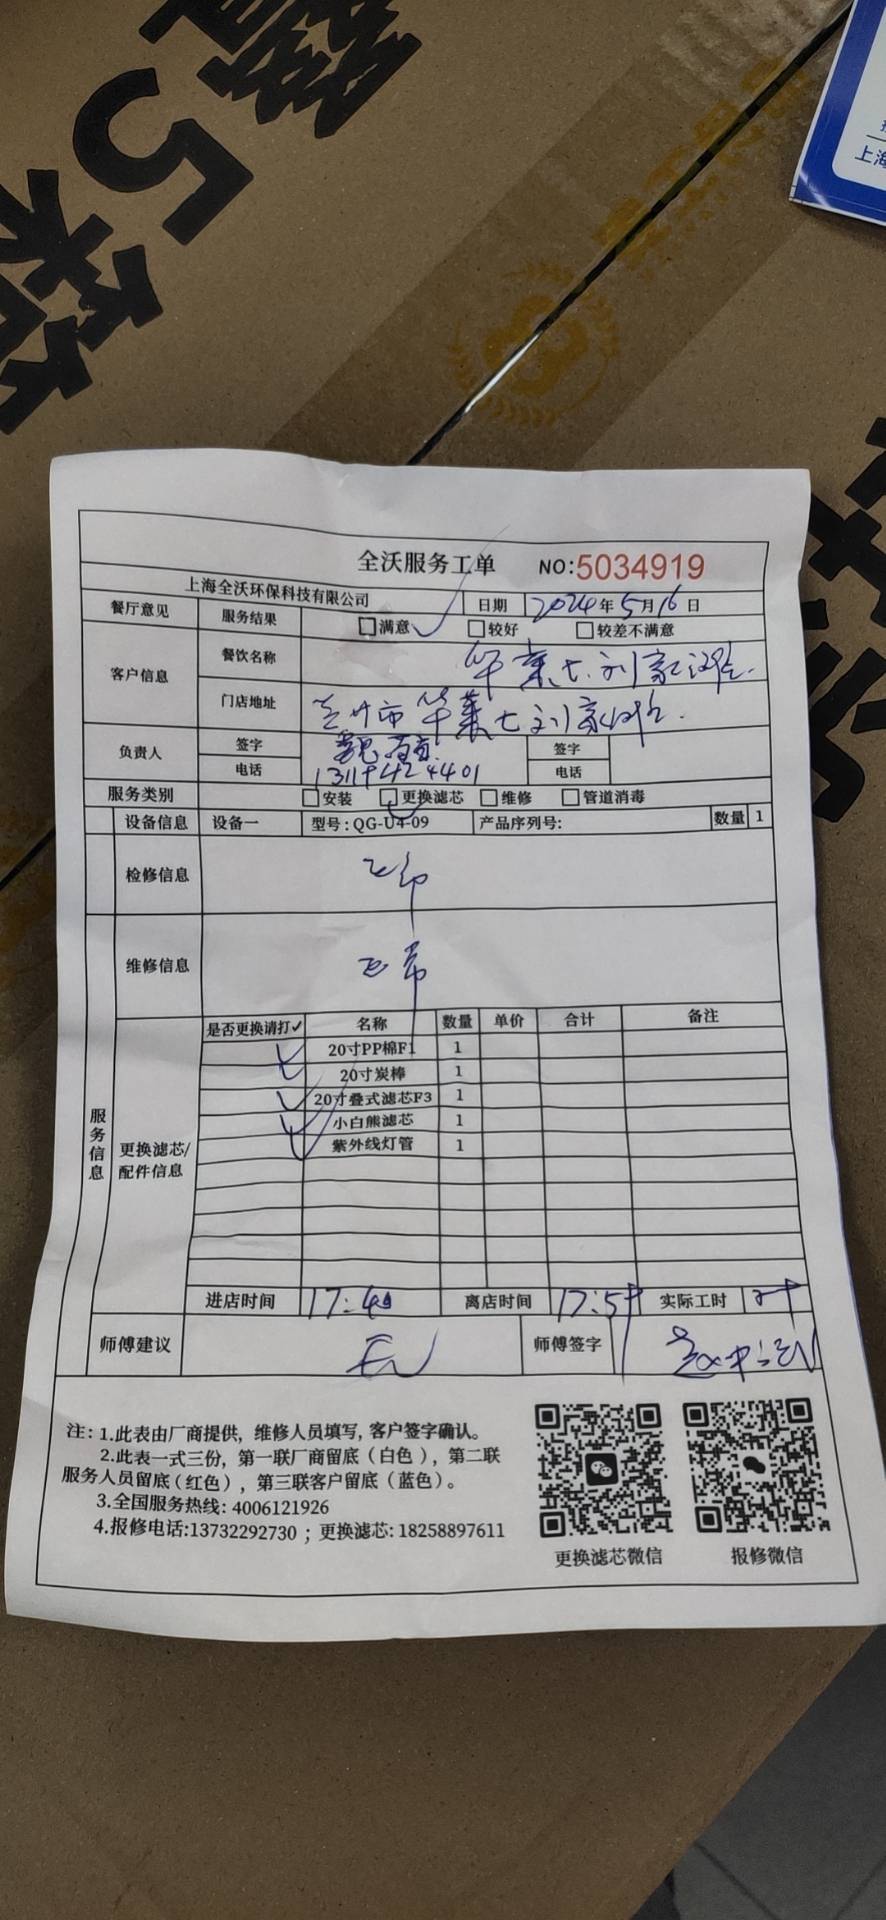 5
上海
全沃服务工单 NO:5034919
上海全沃环保科技有限公司 日期 2024年5月16日
餐厅意见 服务结果 满意 ✓ 较好 较差不满意
客户信息 餐饮名称 华莱士刘家沙
门店地址 兰州市华莱士刘家
负责人 签字 签字
电话 电话
服务类别 安装 更换滤芯 维修 管道消毒
设备信息 设备一 型号:QG-U4-09 产品序列号: 数量 1
检修信息 正常
维修信息 正常
是否更换请打✓ 名称 数量 单价 合计 备注
✓ 20寸PP棉F1 1
✓ 20寸炭棒 1
✓ 20寸叠式滤芯F3 1
✓ 小白熊滤芯 1
✓ 紫外线灯管 1
服务信息
更换滤芯/
配件信息
进店时间 17:40 离店时间 实际工时
师傅建议 无 师傅签字
注: 1.此表由厂商提供, 维修人员填写, 客户签字确认。
2.此表一式三份, 第一联厂商留底(白色), 第二联
服务人员留底(红色), 第三联客户留底(蓝色)。
3.全国服务热线: 4006121926
4.报修电话:13732292730 ; 更换滤芯: 18258897611
更换滤芯微信 报修微信